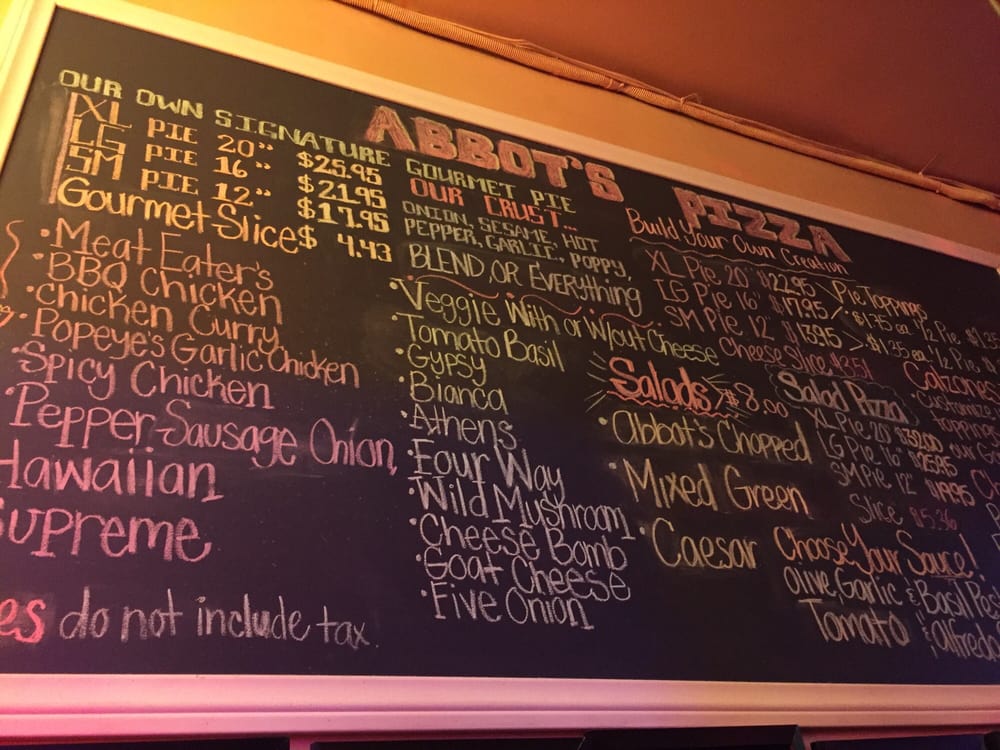 ABBOT'S PIZZA
OUR OWN SIGNATURE GOURMET PIE
XL PIE 20" $25.95
LG PIE 16" $21.95
SM PIE 12" $17.95
Gourmet Slice $ 4.43
• Meat Eater's
• BBQ Chicken
• Chicken Curry
• Popeye's Garlic Chicken
• Spicy Chicken
• Pepper-Sausage Onion
Hawaiian
Supreme
es do not include tax
OUR CRUST...
ONION, SESAME, HOT
PEPPER, GARLIC, POPPY,
BLEND, OR EVERYthing
• Veggie With or W/out Cheese
• Tomato Basil
• Gypsy
• Bianca
• Athens
• Four Way
• Wild Mushroom
• Cheese Bomb
• Goat Cheese
• Five Onion
Build Your Own Creation
XL Pie 20" $22.95
LG Pie 16" $17.95
SM Pie 12" $13.95
Cheese Slice $3.51
Pie Toppings
$1.75 ea 1/2 Pie
$1.35 ea 1/2 Pie
Salads $8.00
• Abbot's Chopped
• Mixed Green
• Caesar
Salad Pizza
XL Pie 20"
LG Pie 16" $25.95
SM Pie 12" $19.95
Slice $5.36
Choose Your Sauce!
Olive Garlic & Basil Pes
Tomato & alfredo
Calzones
• Customize
toppings